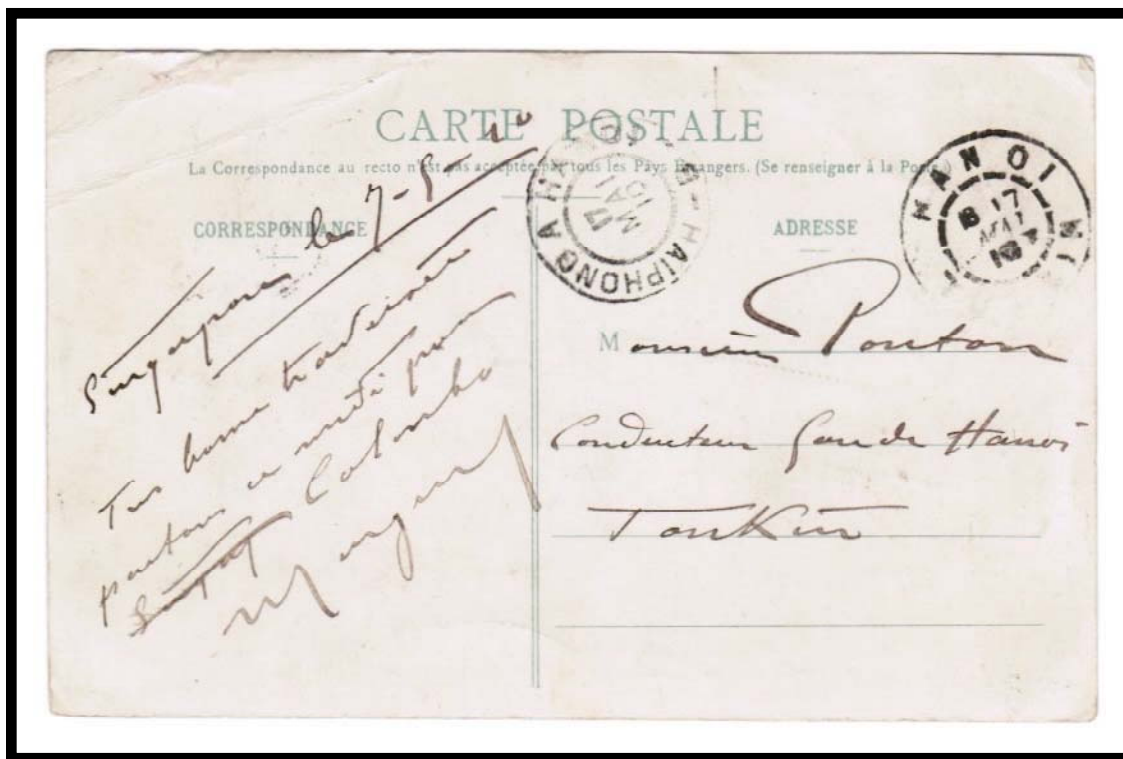 CARTE POSTALE
La Correspondance au recto n'est pas acceptée par tous les Pays Étrangers. (Se renseigner à la Poste.)
CORRESPONDANCE
Singapore le 7-5-10
Tres bonne traversée
partons ce midi pour
Colombo
ADRESSE
Monsieur Ponton
Conducteur Gare de Hanoi
Tonkin
HANOI A HAIPHONG
17 MAI 10
HANOI
17 MAI